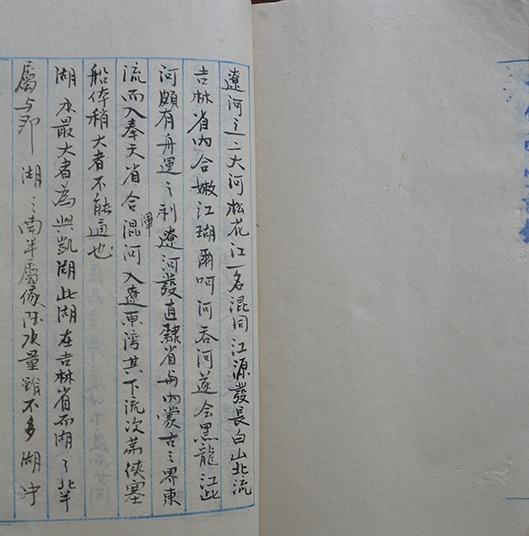 遼河之二大河松花江一名混同江源發長白山北流
吉林省內合嫩江瑚爾呵河吞河遂会黑龍江此
河頗有舟運之利遼河發直隸省与內蒙古之界東
流而入奉天省合混河入遼東湾其下流次第俠塞
渾
船体稍大者不能通也
湖水最大者為興凱湖此湖在吉林省而湖之北半
屬与邦湖之南半屬俄陸水量雖不多湖中